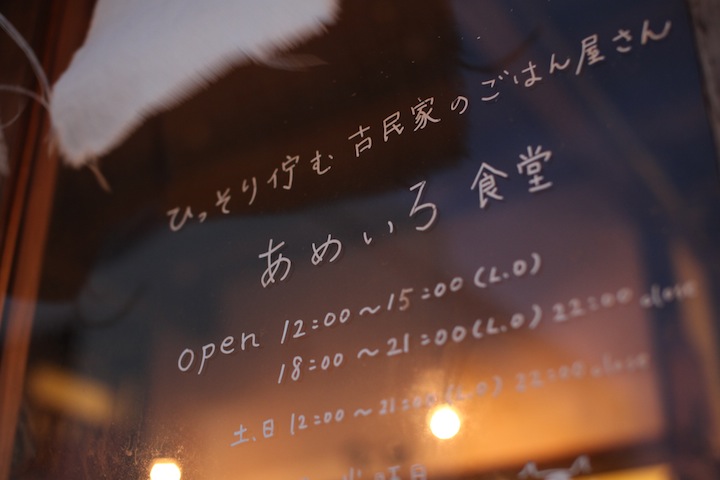 ひっそり佇む 古民家のごはん屋さん
あめいろ 食堂
open 12:00～15:00(L.O)
18:00～21:00(L.O) 22:00 close
土、日 12:00～21:00(L.O) 22:00 close